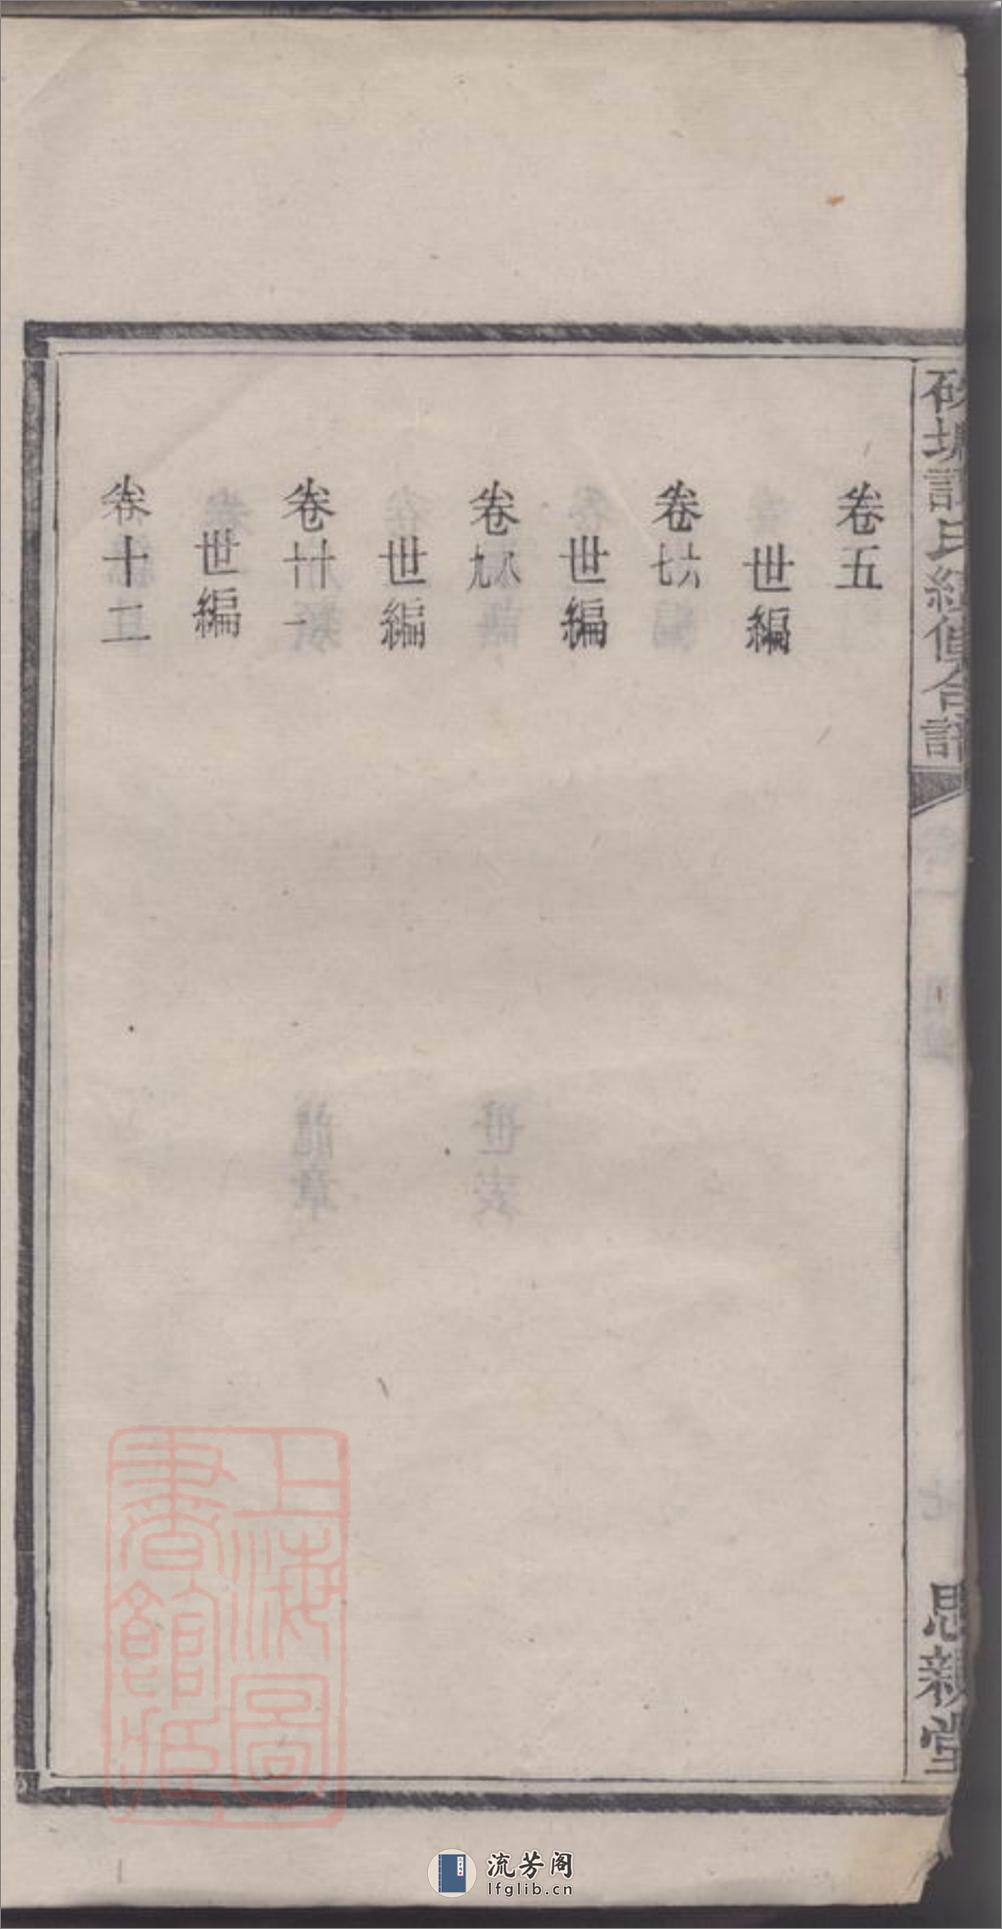 卷五
世編
卷六七
世編
卷八九
世編
卷十十一
世編
卷十二
譚氏續修合譜
思親堂
上海圖書館藏
流芳阁
lfglib.cn